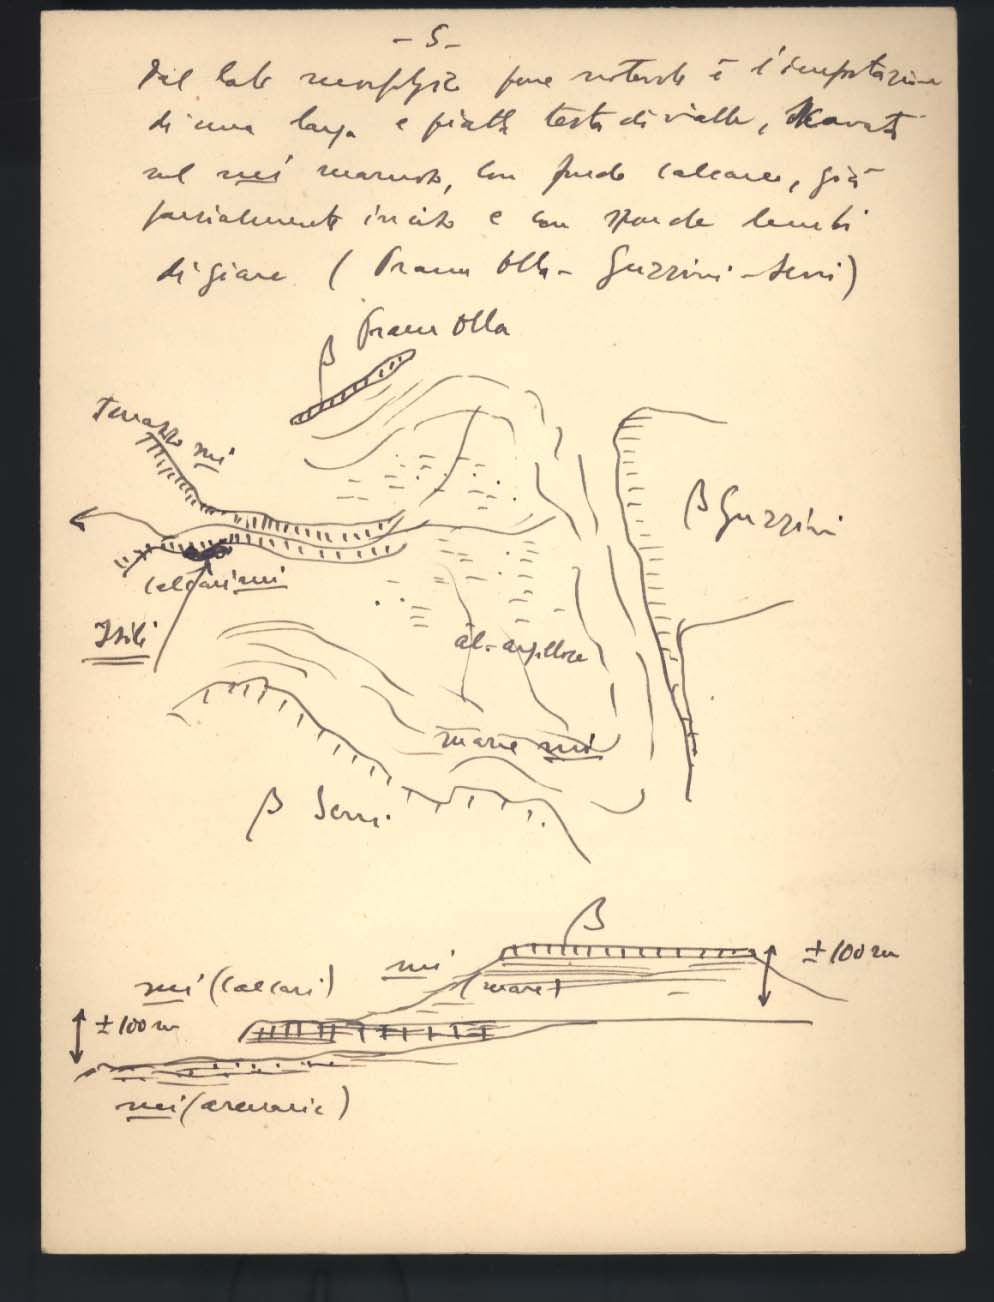 - 5 -
Dal lato morfologico pure notevole è l'impostazione
di una larga e piatta testa di valle, scavata
nel mi marnoso, con fondo calcareo, già
parzialmente inciso e con sponde lembi
di giare ( Pranu Olla - Guzzini - Serri )
β Pranu Olla
Terrazzo mi
β Guzzini
calcari mi
Isili
al. argillose
marne mi
β Serri
β
mi ± 100 m
mi (calcari) (marne)
± 100 m
mi (arenarie)